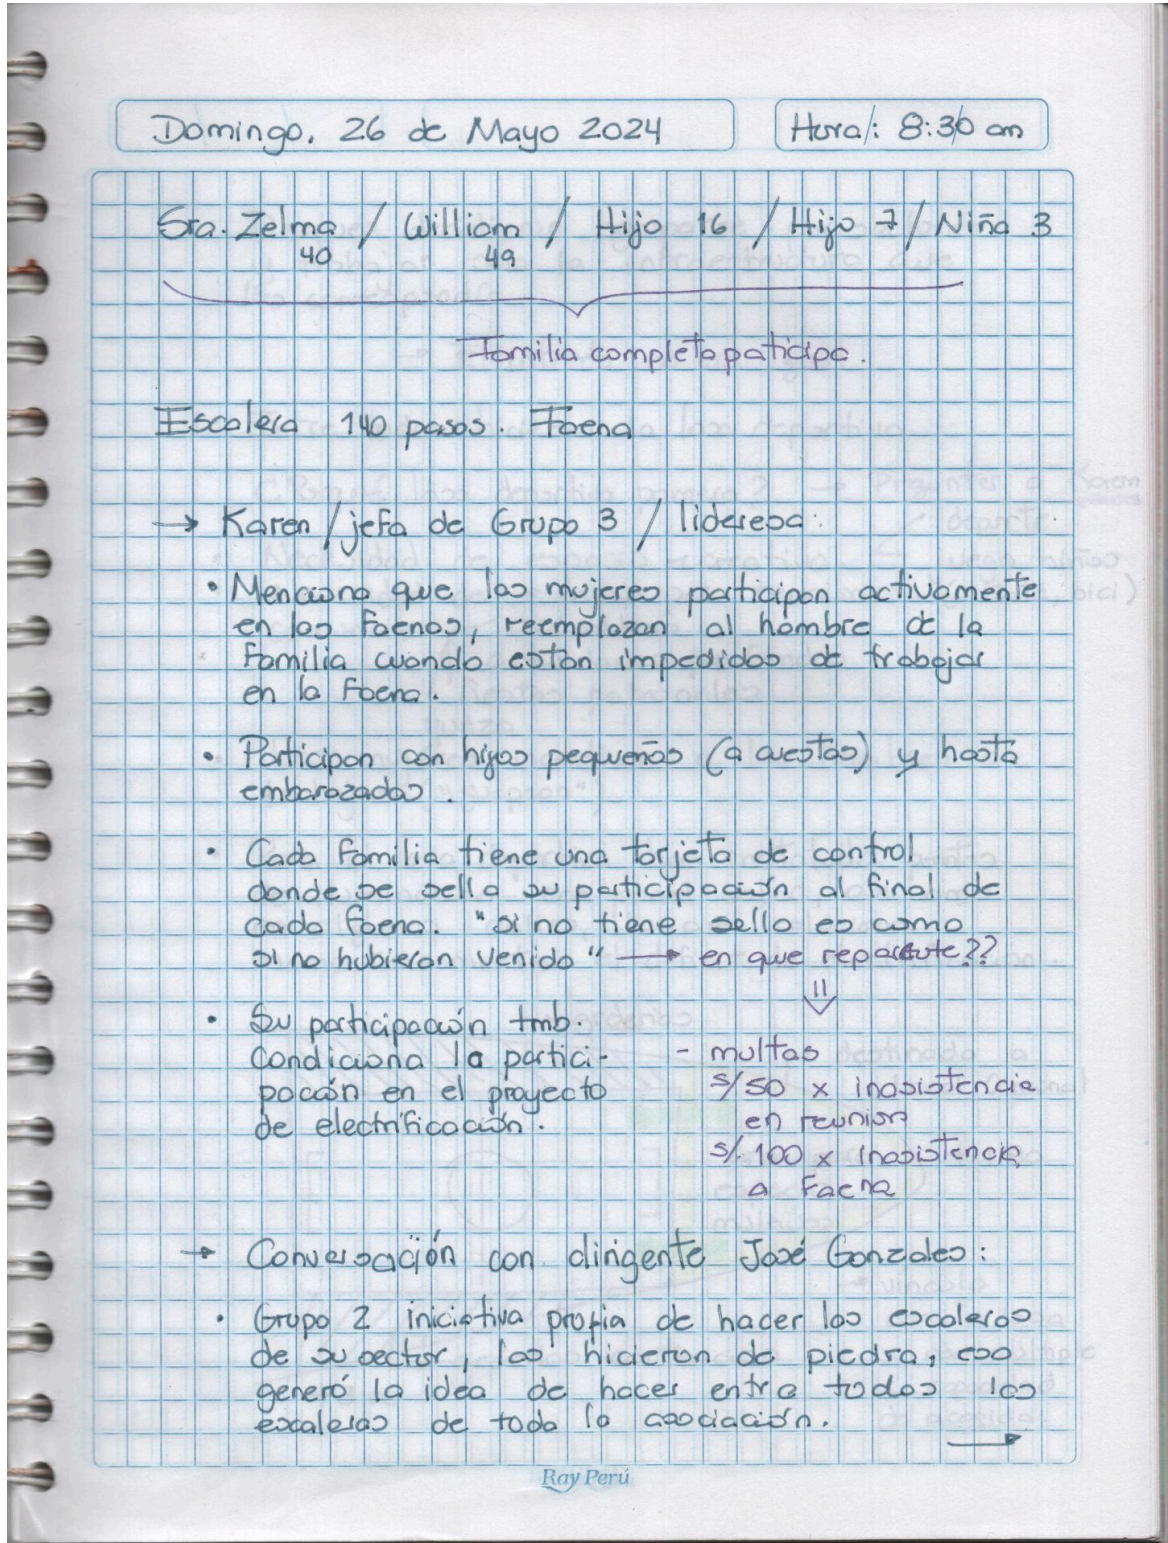 Domingo, 26 de Mayo 2024
Hora/: 8:30 am
Sra. Zelma / William / Hijo 16 / Hijo 7 / Niña 3
40 49
Familia completa paticipa.
Escalera 140 pasos. Faena
→ Karen / jefa de Grupo 3 / lideresa:
• Menciona que las mujeres participan activamente
en las faenas, reemplazan al hombre de la
familia cuando estan impedidos de trabajar
en la faena.
• Participan con hijos pequeños (a cuestas) y hasta
embarazadas.
• Cada familia tiene una tarjeta de control
donde se sella su participación al final de
cada faena. "si no tiene sello es como
si no hubieran venido" → en que repercute??
⇓
• Su participación tmb.
condiciona la partici-
pación en el proyecto
de electrificación.
- multas
s/50 x inasistencia
en reunion
s/. 100 x inasistencia
a Faena
→ Conversación con dirigente José Gonzales:
• Grupo 2 iniciativa propia de hacer las escaleras
de su sector, las hicieron de piedra, eso
generó la idea de hacer entre todos las
escaleras de toda la asociación.
→
Ray Perú